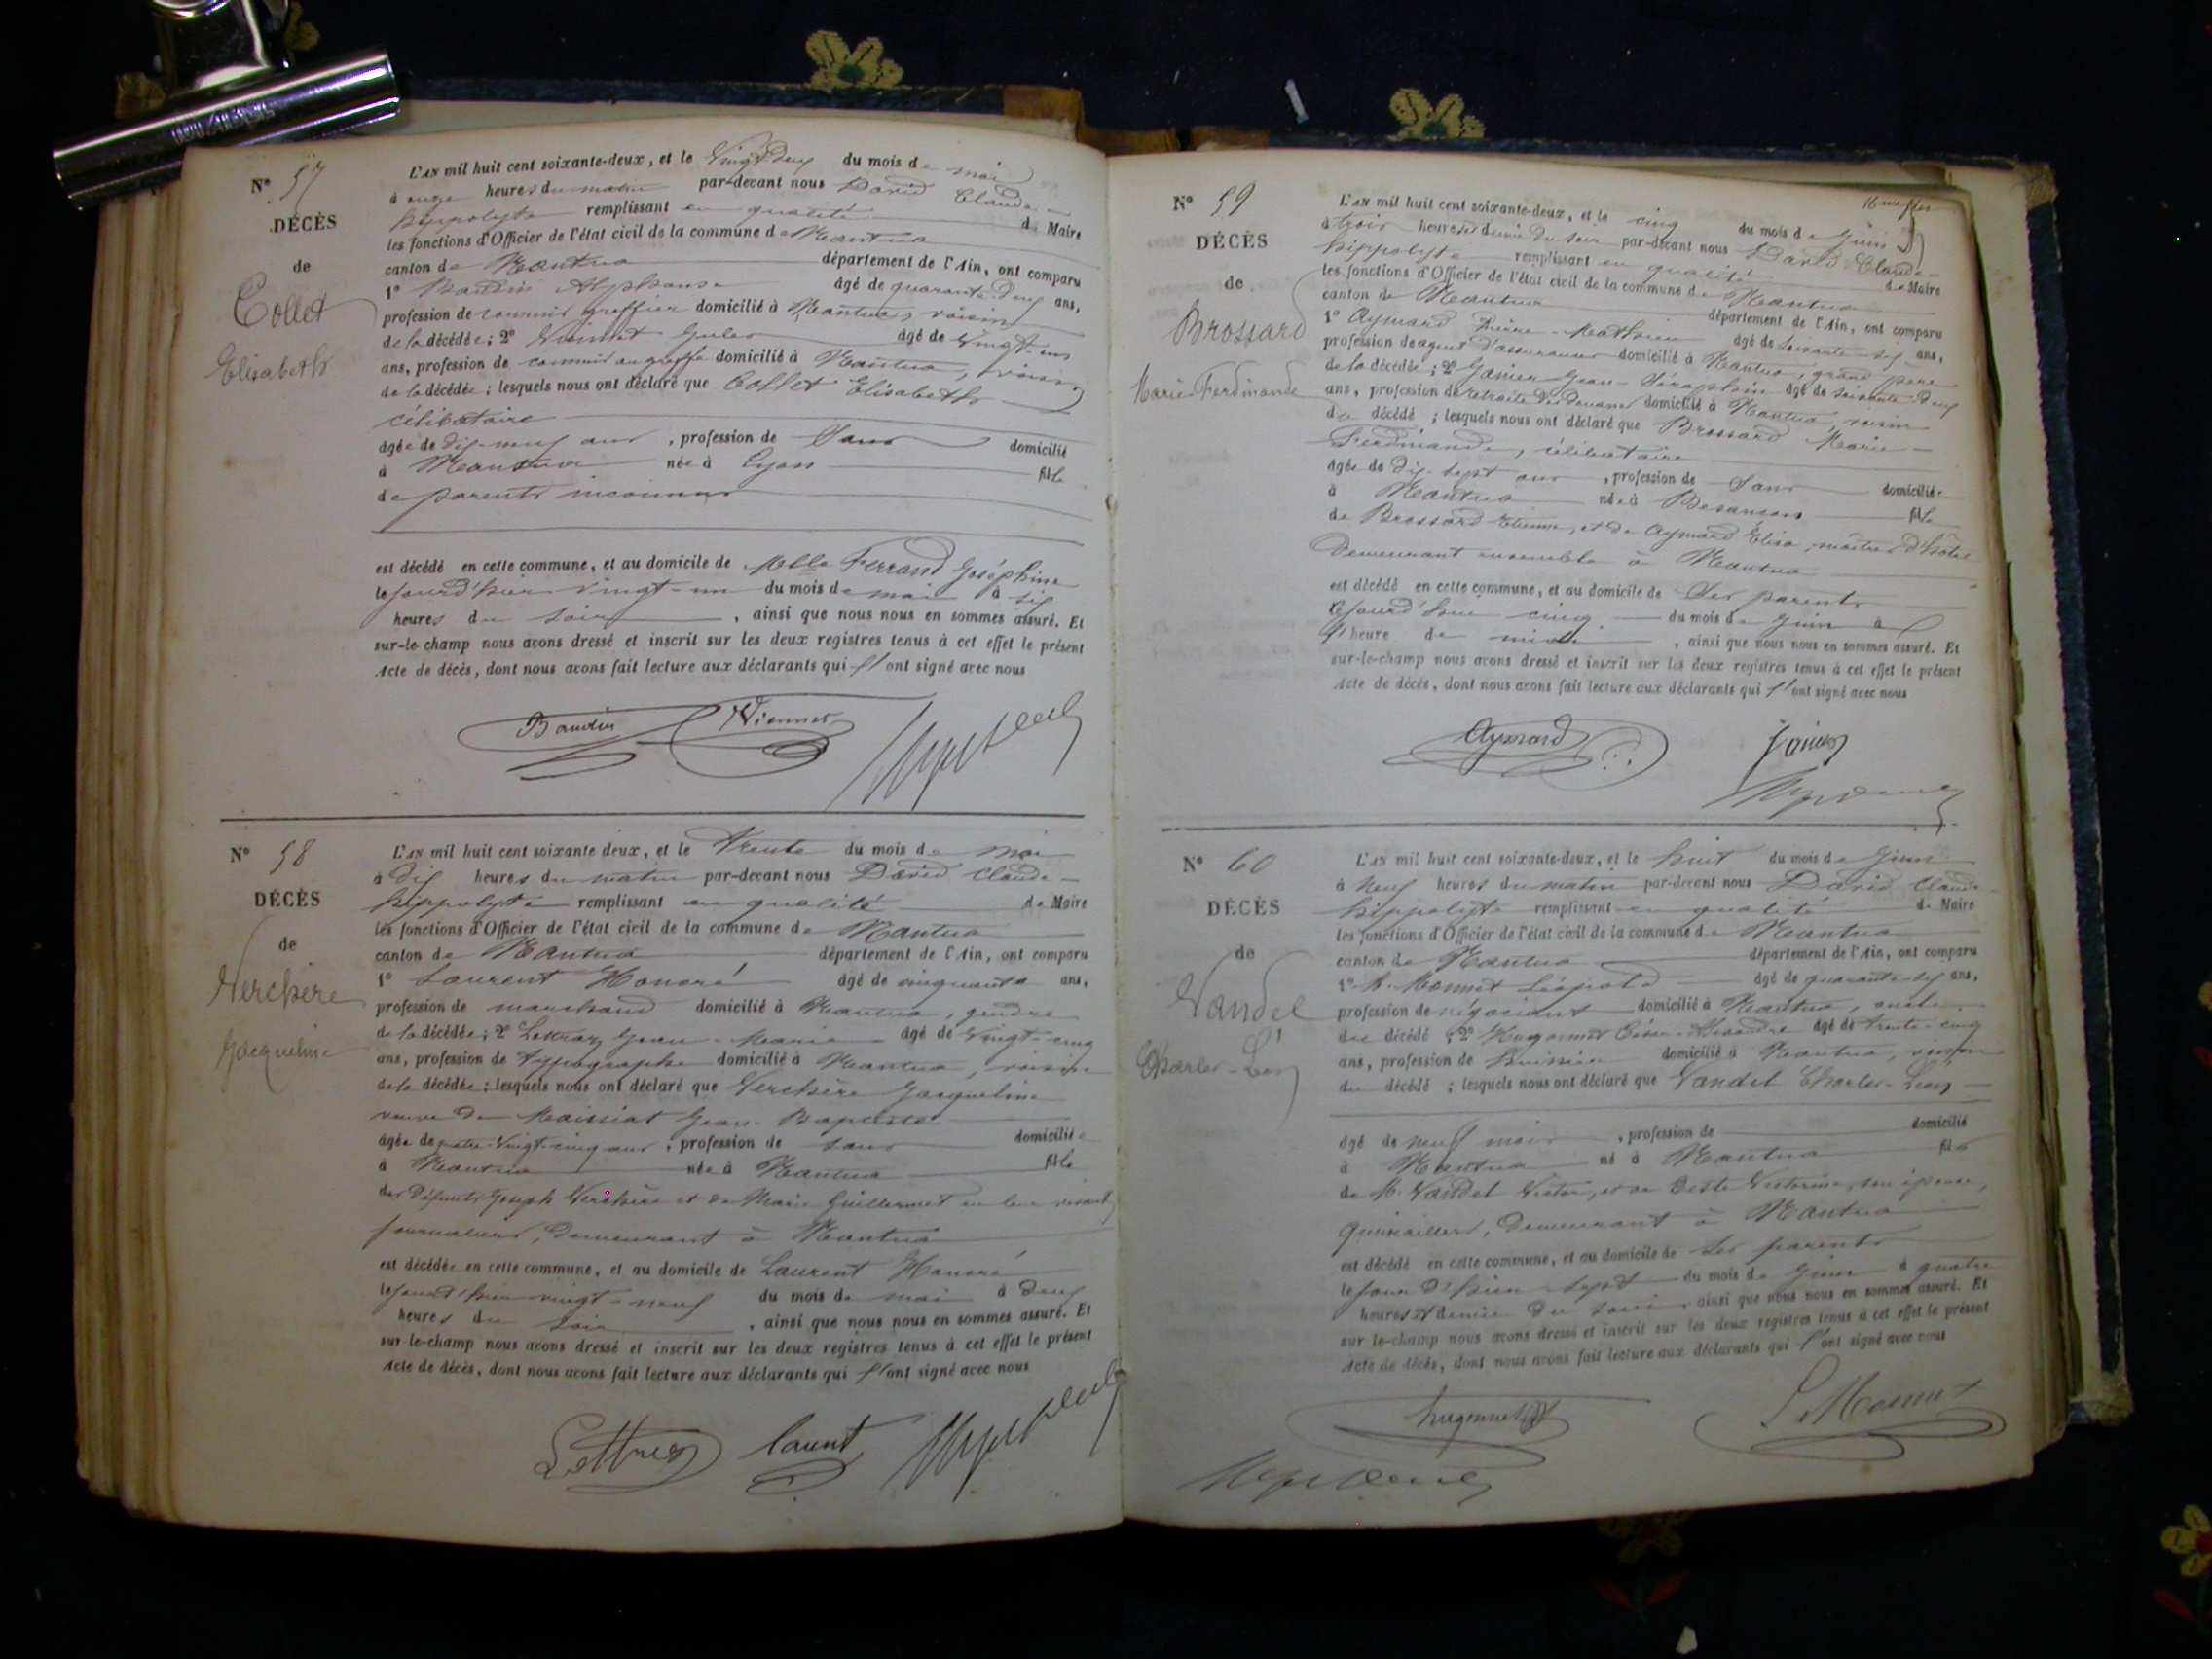 N° 57
DÉCÈS
de
Collet
Elisabeth
L'AN mil huit cent soixante-deux, et le Vingt Deux du mois de mai
à onze heures du matin par-devant nous David Claude-
hippolyte remplissant en qualité de Maire
les fonctions d'Officier de l'état civil de la commune de Nantua
canton de Nantua département de l'Ain, ont comparu
1° Baudin Alphonse âgé de quarante-deux ans,
profession de commis greffier domicilié à Nantua, voisin
de la décédée; 2° Viennet Jules âgé de Vingt-un
ans, profession de commis au greffe domicilié à Nantua, voisin
de la décédée; lesquels nous ont déclaré que Collet Elisabeth
célibataire
âgée de dix-neuf ans, profession de Sans domicilié
à Nantua née à Lyon fille
de parents inconnus
est décédé en cette commune, et au domicile de Melle Ferrand Joséphine
le jourd'hier vingt-un du mois de mai à six
heures du soir, ainsi que nous nous en sommes assuré. Et
sur-le-champ nous avons dressé et inscrit sur les deux registres tenus à cet effet le présent
Acte de décès, dont nous avons fait lecture aux déclarants qui l'ont signé avec nous
Baudin Viennet
N° 58
DÉCÈS
de
Verchère
Jacqueline
L'AN mil huit cent soixante deux, et le Trente du mois de mai
à dix heures du matin par-devant nous David Claude-
hippolyte remplissant en qualité de Maire
les fonctions d'Officier de l'état civil de la commune de Nantua
canton de Nantua département de l'Ain, ont comparu
1° Laurent Honoré âgé de cinquante ans,
profession de marchand domicilié à Nantua, gendre
de la décédée; 2° Jean-Marie âgé de Vingt-cinq
ans, profession de typographe domicilié à Nantua, voisin
de la décédée; lesquels nous ont déclaré que Verchère Jacqueline
veuve de Maissiat Jean-Baptiste
âgée de quatre-vingt-cinq ans, profession de sans domiciliée
à Nantua née à Nantua fille
des défunts Joseph Verchère et de Marie Guillermet en leur vivant
journaliers, demeurant à Nantua
est décédée en cette commune, et au domicile de Laurent Honoré
le jourd'hier vingt-neuf du mois de mai à deux
heures du soir, ainsi que nous nous en sommes assuré. Et
sur-le-champ nous avons dressé et inscrit sur les deux registres tenus à cet effet le présent
Acte de décès, dont nous avons fait lecture aux déclarants qui l'ont signé avec nous
N° 59
DÉCÈS
de
Brossard
Marie-Ferdinande
L'AN mil huit cent soixante-deux, et le cinq du mois de Juin
à trois heures et demie du soir par-devant nous David Claude-
hippolyte remplissant en qualité de Maire
les fonctions d'Officier de l'état civil de la commune de Nantua
canton de Nantua département de l'Ain, ont comparu
1° Aymard Pierre-Mathieu âgé de soixante-six ans,
profession de agent d'assurances domicilié à Nantua, grand père
de la décédée; 2° Jean-Séraphin âgé de soixante-deux
ans, profession de retraité des Douanes domicilié à Nantua, voisin
du décédé; lesquels nous ont déclaré que Brossard Marie-
Ferdinande, célibataire
âgée de dix-sept ans, profession de Sans domiciliée
à Nantua née à Besançon fille
de Brossard Etienne, et de Aymard Élisa, maîtres d'hôtel
demeurant ensemble à Nantua
est décédé en cette commune, et au domicile de Ses parents
le jourd'hui cinq du mois de juin à
heure de, ainsi que nous nous en sommes assuré. Et
sur-le-champ nous avons dressé et inscrit sur les deux registres tenus à cet effet le présent
Acte de décès, dont nous avons fait lecture aux déclarants qui l'ont signé avec nous
Aymard
N° 60
DÉCÈS
de
Vandel
Charles-Léon
L'AN mil huit cent soixante-deux, et le huit du mois de Juin
à neuf heures du matin par-devant nous David Claude-
hippolyte remplissant en qualité de Maire
les fonctions d'Officier de l'état civil de la commune de Nantua
canton de Nantua département de l'Ain, ont comparu
1° M. Monnet Léopold âgé de quarante-six ans,
profession de négociant domicilié à Nantua, oncle
du décédé; 2° Hugonnet César-Alexandre âgé de trente-cinq
ans, profession de huissier domicilié à Nantua, voisin
du décédé; lesquels nous ont déclaré que Vandel Charles-Léon
âgé de neuf mois, profession de domicilié
à Nantua né à Nantua fils
de M. Vandel Victor, et de Beste Victorine, son épouse,
quincaillers, demeurant à Nantua
est décédé en cette commune, et au domicile de Ses parents
le jour d'hier sept du mois de Juin à quatre
heures et demie du soir, ainsi que nous nous en sommes assuré. Et
sur le-champ nous avons dressé et inscrit sur les deux registres tenus à cet effet le présent
Acte de décès, dont nous avons fait lecture aux déclarants qui l'ont signé avec nous
hugonnet L. Monnet